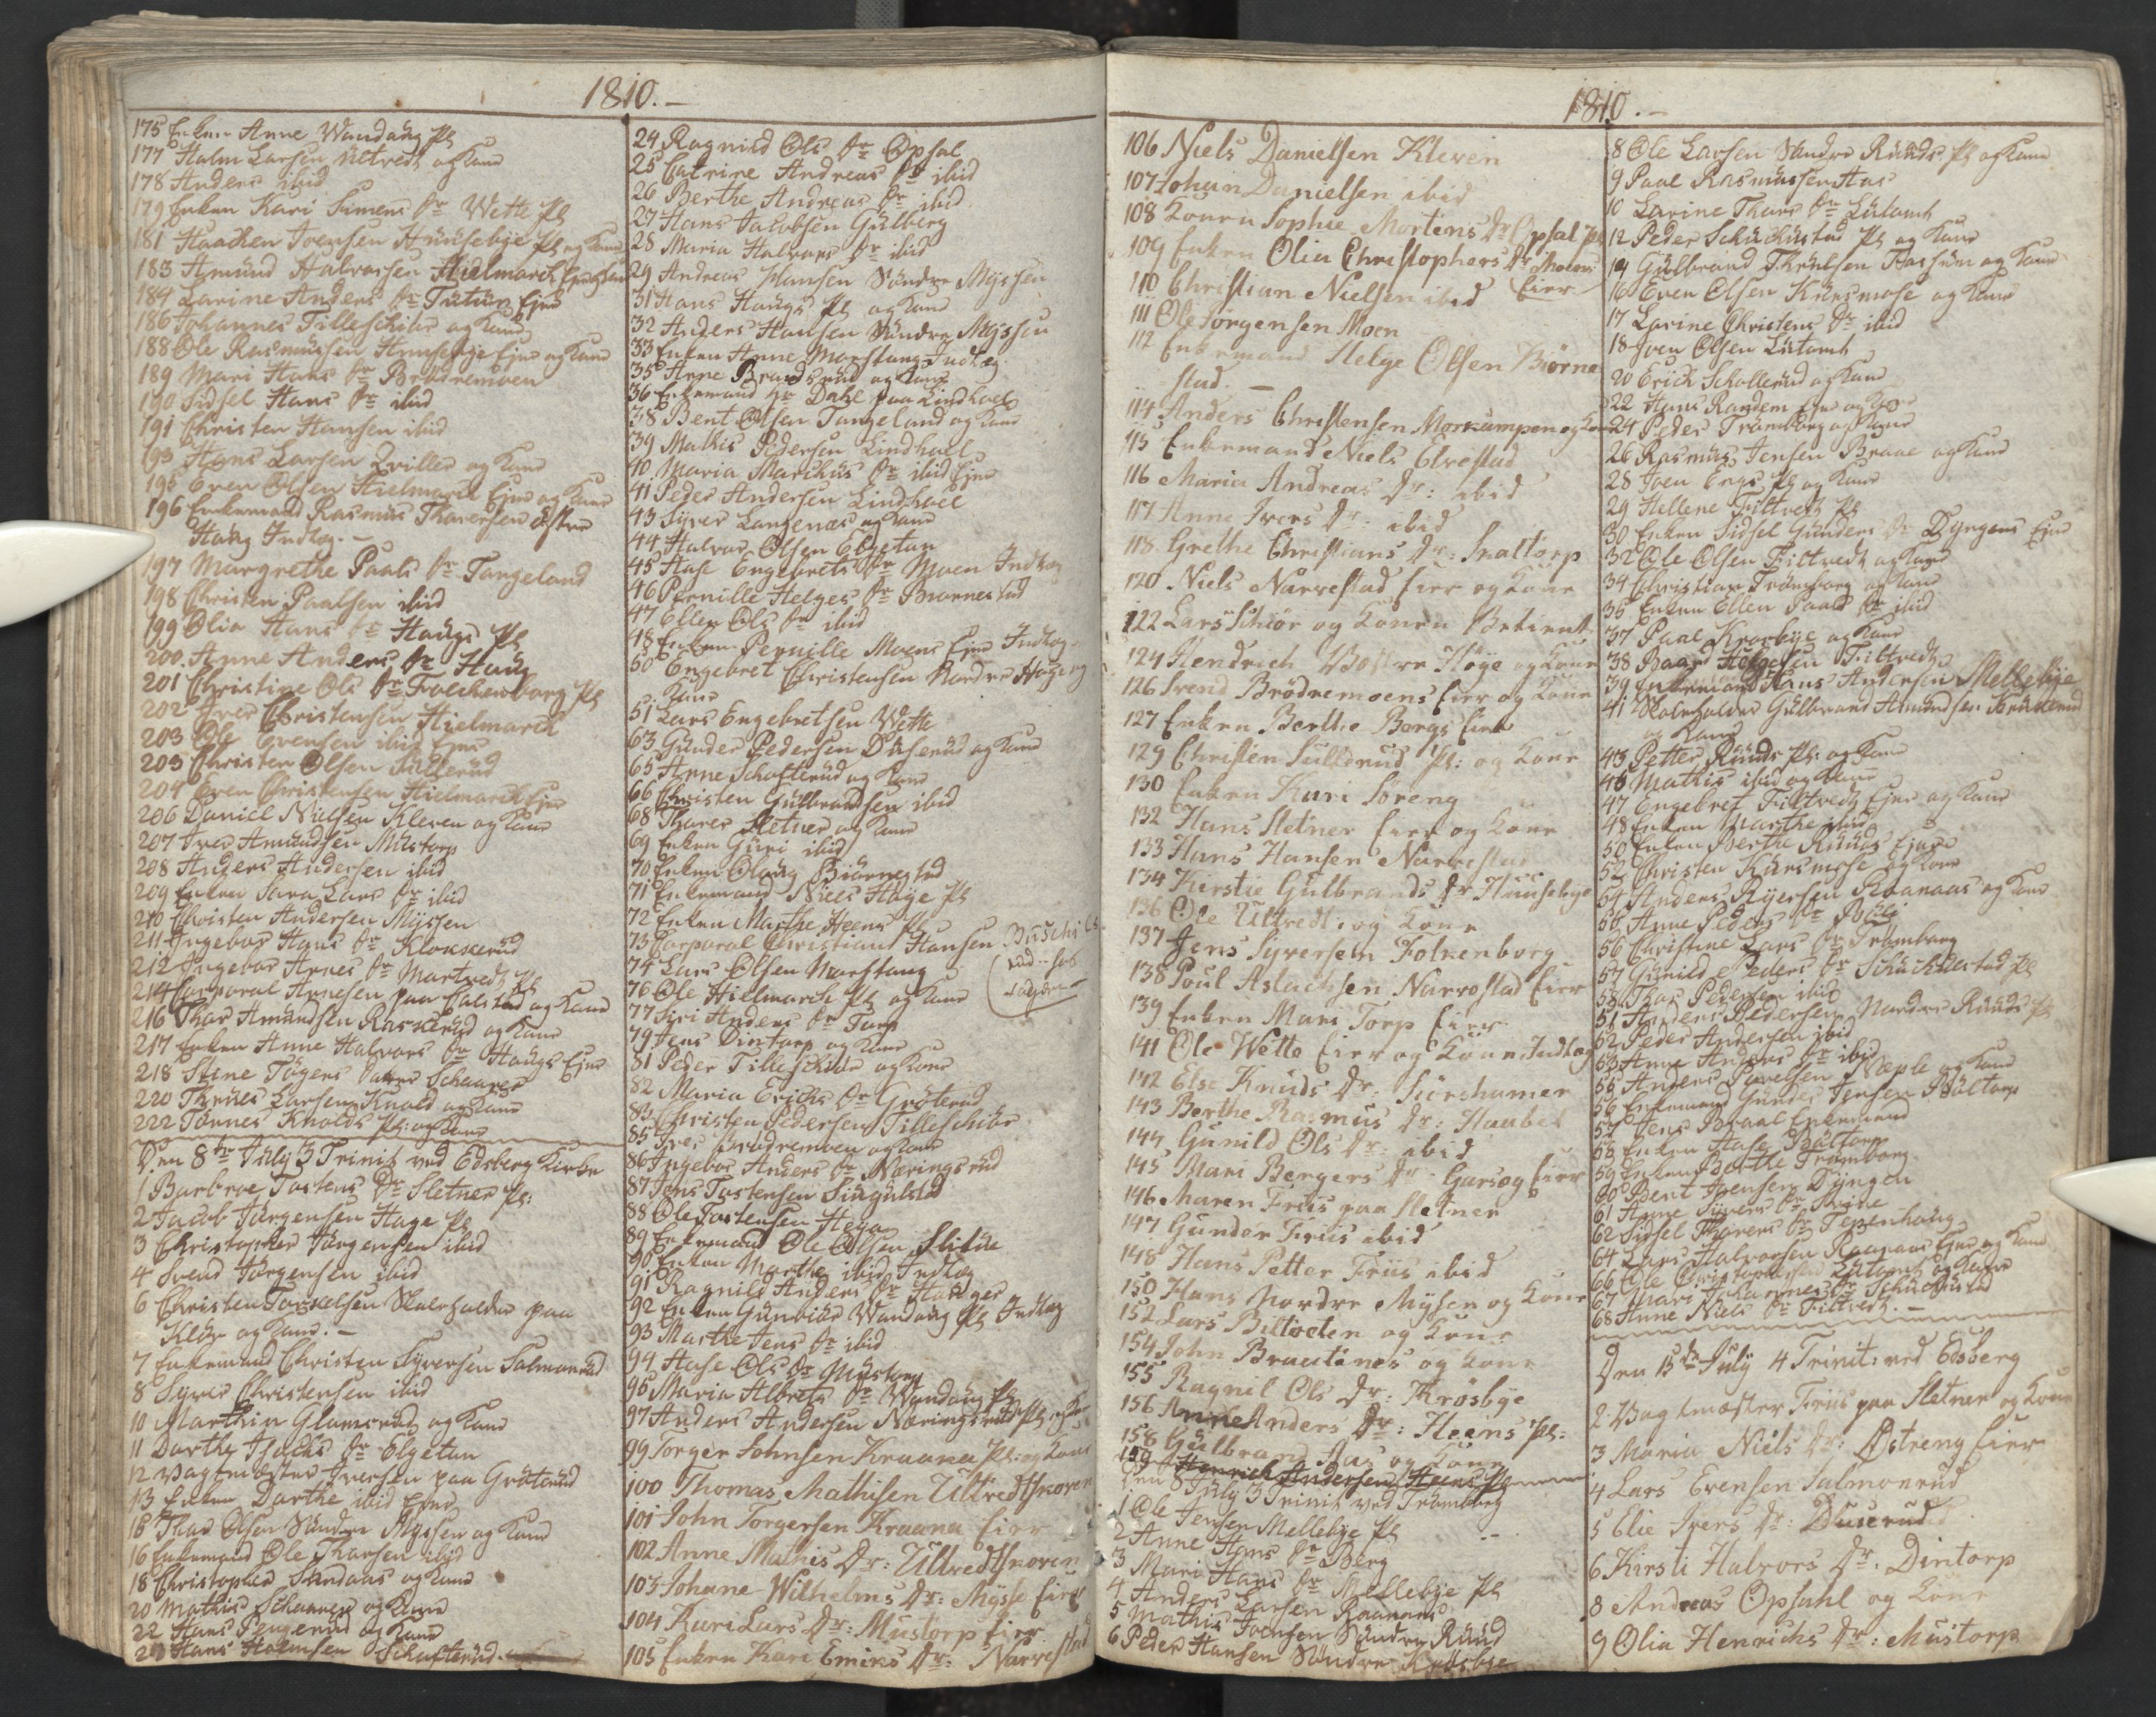 1810.-
175 Enken Anne Wandaug Pl
177 Halm Larsen Ultvedt og Kone
178 Anders ibid
179 Enken Kari Simens Dr Wette Pl
181 Haachen Joensen Huusebye Pl og Kone
183 Amund Halvorsen Hielmarck
184 Larine Anders Dr Tutur Ejer
186 Johannes Tilleschibr og Kone
188 Ole Rasmussen Huusebye Ejer og Kone
189 Mari Hans Dr Brödremoen
190 Sidsel Hans Dr ibid
191 Christen Hansen ibid
193 Hans Larsen Qviller og Kone
195 Even Olsen Hielmarck Ejer og Kone
196 Enkemand Rasmus Thoversen østre
Haug Indtog.-
197 Margrethe Paals Dr Tangeland
198 Christen Paalsen ibid
199 Olia Hans Dr Haugs Pl
200. Anne Anders Dr Haug
201 Christine Ols Dr Froechenborg Pl
202 Iver Christensen Hielmarck
203 Ole Evensen ibid Ejer
203 Christen Olsen Sullerud
204 Even Christensen Hielmarck Ejer
206 Daniel Nielsen Kleven og Kone
207 Iver Amundsen Mustorp
208 Anders Andersen ibid
209 Enken Sara Lars Dr ibid
210 Christen Andersen Myssen
211 Ingebor Hans Dr Klokkerud
212 Ingebor Arnes Dr Martvedt Pl
214 Corporal Arnesen paa Salstad og Kone
216 Thor Amundsen Raskerud og Kone
217 Enken Anne Halvors Dr Haugs Ejer
218 Stine Tögers Datter Schaaren
220 Thrues Larsen Knold og Kone
222 Tönnes Knolds Pl: og Kone
Den 8de July 3 Trinit ved Edsberg Kirke
1 Barbroe Tostens Dr Sletner Pl:
2 Jacob Jörgensen Hage Pl
3 Christopher Jörgensen ibid
4 Svend Jörgensen ibid
6 Christen Torkelsen Skoleholder paa
Klör og Kone.-
7 Enkemand Christen Syversen Salmonrud
8 Syver Christensen ibid
10 Marthin Glamsrud og Kone
11 Dorthe Isachs Dr Elgetun
12 Vagtmæster Iversen paa Gröterud
13 Enken Dorthe ibid Ejer
15 Thor Olsen Söndre Myssen og Kone
16 Enkemand Ole Thorsen ibid
18 Christopher Sandaas og Kone
20 Mathis Schaaren og Kone
22 Hans Pengerud og Kone
23 Hans Holmsen Schofterud.
24 Ragnild Ols Dr Opsal
25 Catrine Andreas Dr ibid
26 Berthe Andreas Dr ibid
27 Hans Jacobsen Gulberg
28 Maria Halvors Dr ibid
29 Andreas Hansen Söndre Myssen
31 Hans Haugs Pl og Kone
32 Anders Hansen Söndre Myssen
33 Enken Anne Morstang Indtog
35 Arne Brandsrud og Kone
36 Enkemand Hr Dahl paa Lindhoel
38 Bent Olsen Tangeland og Kone
39 Mathis Pedersen Lindhoel
40. Maria Marckus Dr ibid Ejer
41 Peder Andersen Lindhoel
43 Syver Langenæs og Kone
44 Halvor Olsen Elgetun
45 Aase Engebrets Dr Moen Indtog
46 Pernille Helges Dr Biornestad
47 Ellen Ols Dr ibid
48 Enken Pernille Moens Ejer Indtog
50 Engebret Christensen Nordre Hage og
Kone
51 Lars Engebretsen Wette
63 Gunder Pedersen Duserud og Kone
65 Arne Schofterud og Kone
66 Christen Gulbrandsen ibid
68 Thorer Sletner og Kone
69 Enken Guri ibid
70 Enken Olaug Biörnestad
71 Enkemand Niels Høye Pl
72 Enken Marthe Heens Pl
73 Corporal Christian Hansen
74 Lars Olsen Morstang
76 Ole Hielmarch Pl og Kone
77 Siri Anders Dr Torp
79 Jens Dintorp og Kone
81 Peder Tilleschibr og Kone
82 Maria Erichs Dr Gröterud
83 Christen Pedersen Tilleschibr
85 Iver Brödremoen og Kone
86 Ingebor Anders Dr Næringsrud
87 Jens Tostensen Singulstad
88 Ole Tostensen Heya
89 Enkemand Ole Olsen Slitue
90 Enken Marthe ibid Indtog
91 Ragnild Anders Dr Hauger
92 Enken Gunbiör Wandaug Pl Indtog
93 Marthe Jens Dr ibid
94 Aase Ols Dr Mustorp
95 Maria Albrets Dr Wandaug Pl
97 Anders Andersen Næringsrud Pl og Kone
99 Torger Johnsen Kraana Pl: og Kone
100 Thomas Mathisen Ultvedtskoven
101 John Torgersen Kraana Eier
102 Anne Mathis Dr: Ultvedtskoven
103 Johane Wilhelms Dr: Mysse Eier
104 Kari Lars Dr: Mustorp Eier
105 Enken Kari Emiks Dr: Narvestad
1810.-
106 Niels Danielsen Kleven
107 Johan Danielsen ibid
108 Konen Sophie Mortens Dr Opsal Pl
109 Enken Olia Christophers Dr Moens
Eier
110 Christian Nielsen ibid
111 Ole Jörgensen Moen
112 Enkemand Helge Olsen Biörne
stad.-
114 Anders Christensen Morkumpen og Kone
115 Enkemand Niels Elvestad
116 Maria Andreas Dr: ibid
117 Anne Ivers Dr: ibid
118 Grethe Christians Dr: Snaltorp
120 Niels Narvestad Eier og Kone
122 Lars Schiör og Konen Betient
124 Hendrich Vestre Høye og Kone
126 Svend Brödremoens Eier og Kone
127 Enken Berthe Bergs Eier
129 Christen Sullerud Pl: og Kone
130 Enken Kari Söreng
132 Hans Sletner Eier og Kone
133 Hans Hansen Narvestad
134 Kirstie Gulbrands Dr Huusebye
136 Ole Ultvedt og Kone
137 Jens Syversen Folkenborg
138 Poul Aslachsen Narvestad Eier
139 Enken Mari Torp Eier
141 Ole Wette Eier og Kone Indtog
142 Else Knuds Dr: Surshamer
143 Berthe Rasmus Dr: Haabet
144 Gunild Ols Dr: ibid
145 Mari Bergers Dr: Garseg Eier
146 Maren Friis paa Sletner
147 Gunder Friis ibid
148 Hans Petter Friis ibid
150 Hans Nordre Mysen og Kone
152 Lars Biltveten og Kone
154 John Brautenes og Kone
155 Ragnil Ols Dr: Krösbye
156 Anne Anders Dr: Heens Pl:
158 Gulbrand Aas og Kone
159 Henrich Andersen Heens Pl
Den 8 July 3 Trinit ved Trömborg
1 Ole Jensen Mellebye Pl
2 Anne Hans Dr Berg
3 Mari Hans Dr Mellebye Pl
4 Anders Larsen Raanaas
5 Mathis Joensen Söndre Ruud
6 Peder Hansen Söndre Krosbye
8 Ole Larsen Söndre Ruuds Pl og Kone
9 Paal Rasmussen Aas
10 Larine Thors Dr Lutomt
12 Peder Schuchestad Pl og Kone
14 Gulbrand Thrulsen Fossum og Kone
16 Even Olsen Kursmose og Kone
17 Larine Christens Dr ibid
18 Iver Olsen Lutomt
20 Erich Schollerud og Kone
22 Hans Randem Ejer og Kone
24 Peder Tromborg og Kone
26 Rasmus Jensen Braae og Kone
28 Joen Engs Pl og Kone
29 Hellene Filtvedt Pl
30 Enken Sidsel Gunders Dr Dyngens Ejer
32 Ole Olsen Filtvedt og Kone
34 Christian Trömborg og Kone
35 Enken Ellen Paals Dr ibid
37 Paal Krosbye og Kone
38 Baar Helgesen Filtvedt
39 Enkemand Hans Andersen Mellebye
41 Skoleholder Gulbrand Amundsen
og Kone
43 Petter Ruuds Pl: og Kone
45 Mathis ibid og Kone
47 Engebret Filtvedt Ejer og Kone
48 Enken Marthe ibid
50 Enken Berthe Ruuds Ejer
52 Christen Kursmose og Kone
54 Anders Ryersen Raanaas og Kone
55 Anne Peders Dr
56 Christine Lars Dr Trömborg
57 Gunild Peders Dr Schuchestad Pl
58 Thor Pedersen ibid
51 Anders Pedersen Nordre Ruuds Pl
52 Peder Andersen ibid
53 Anne Anders Dr ibid
55 Anders Povelsen Næple og Kone
56 Enkemand Gunder Jensen Poltorp
57 Jens Braal Enkemand
58 Enken Aase Poltorp
59 Enken Berthe Trömborg
60 Bent Joensen Dyngen
61 Anne Syvers Dr
62 Sidsel Thorers Dr Tepenhaug
64 Lars Halvorsen Raanaas Ejer og Kone
66 Ole Christophersen Lutomt og Kone
67 Mari Johannes Dr Schuchestad
68 Anne Niels Dr Filtvedt.-
Den 15de July 4 Trinit: ved Edsberg
2 Vagtmæster Friis paa Sletner og Kone
3 Maria Niels Dr: Østreng Eier
4 Lars Evensen Salmonrud
5 Elie Ivers Dr: Duserud
6 Kirsti Halvors Dr: Dintorp
8 Andreas Opsahl og Kone
9 Olia Henrichs Dr: Mustorp